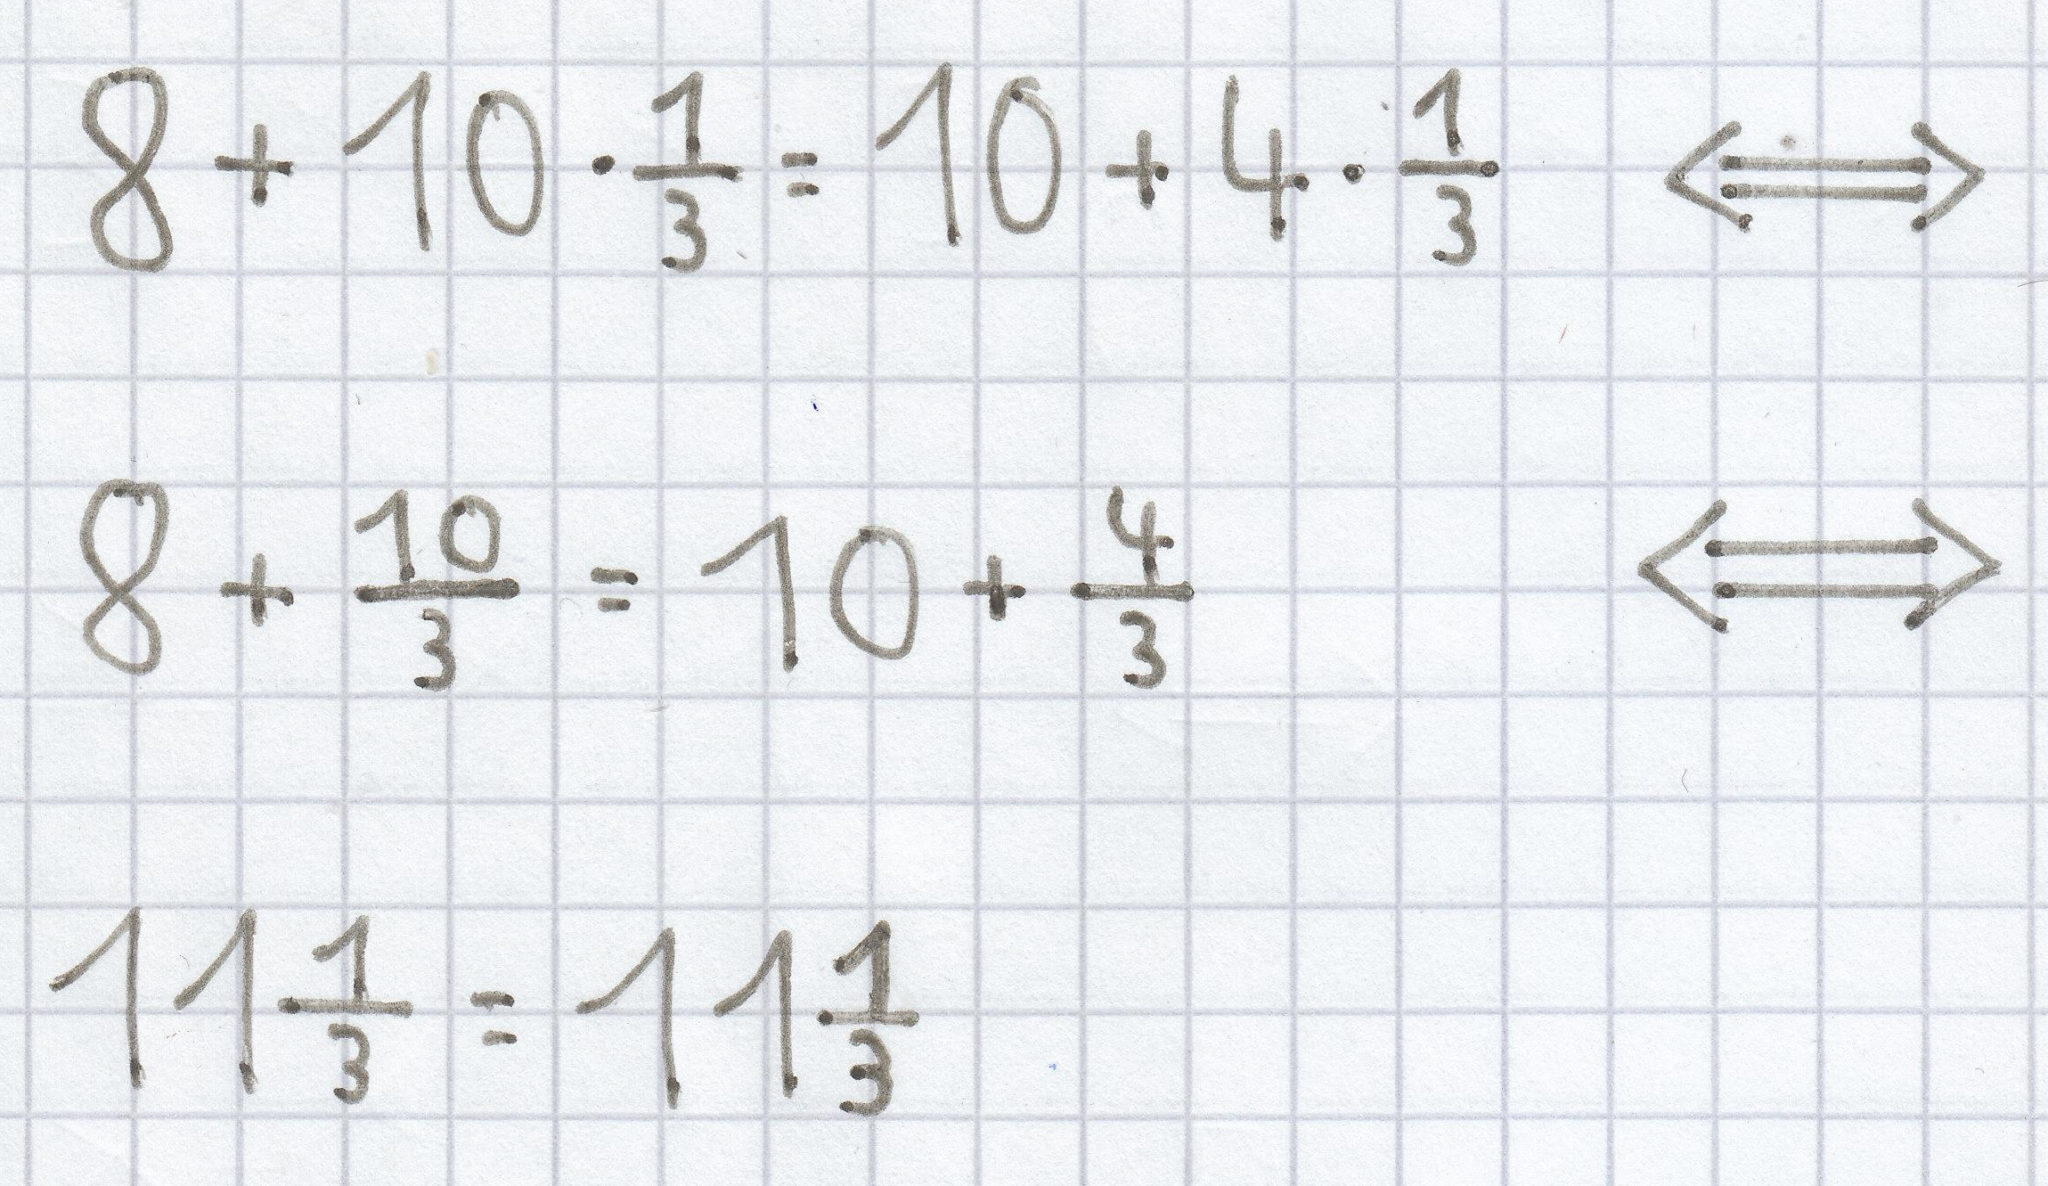 8 + 10 · 1/3 = 10 + 4 · 1/3 ⟺
8 + 10/3 = 10 + 4/3 ⟺
11 1/3 = 11 1/3